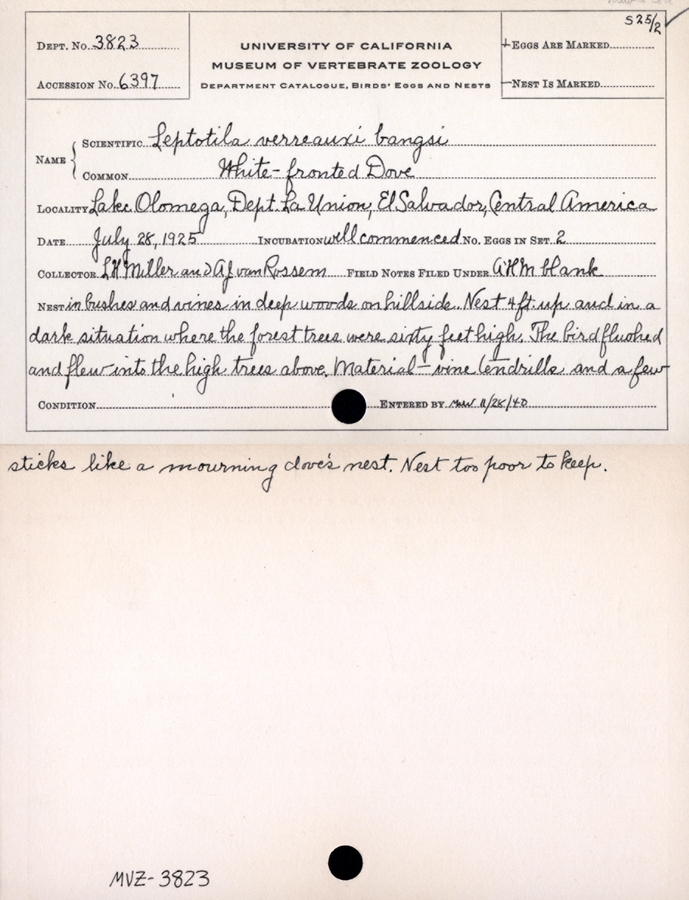 S 25/2
DEPT. NO. 3823
UNIVERSITY OF CALIFORNIA
EGGS ARE MARKED
MUSEUM OF VERTEBRATE ZOOLOGY
ACCESSION NO. 6397
DEPARTMENT CATALOGUE, BIRDS' EGGS AND NESTS
NEST IS MARKED
NAME
SCIENTIFIC Leptotila verreauxi bangsi
COMMON White-fronted Dove
LOCALITY Lake Olomega, Dept. La Union, El Salvador, Central America
DATE July 28, 1925 INCUBATION well commenced NO. EGGS IN SET 2
COLLECTOR L H Miller and A J van Rossem FIELD NOTES FILED UNDER AHM blank
NEST in bushes and vines in deep woods on hillside. Nest 4 ft. up and in a
dark situation where the forest trees were sixty feet high. The bird flushed
and flew into the high trees above. Material - vine tendrills and a few
CONDITION ENTERED BY 11/28/40
sticks like a mourning dove's nest. Nest too poor to keep.
MVZ-3823